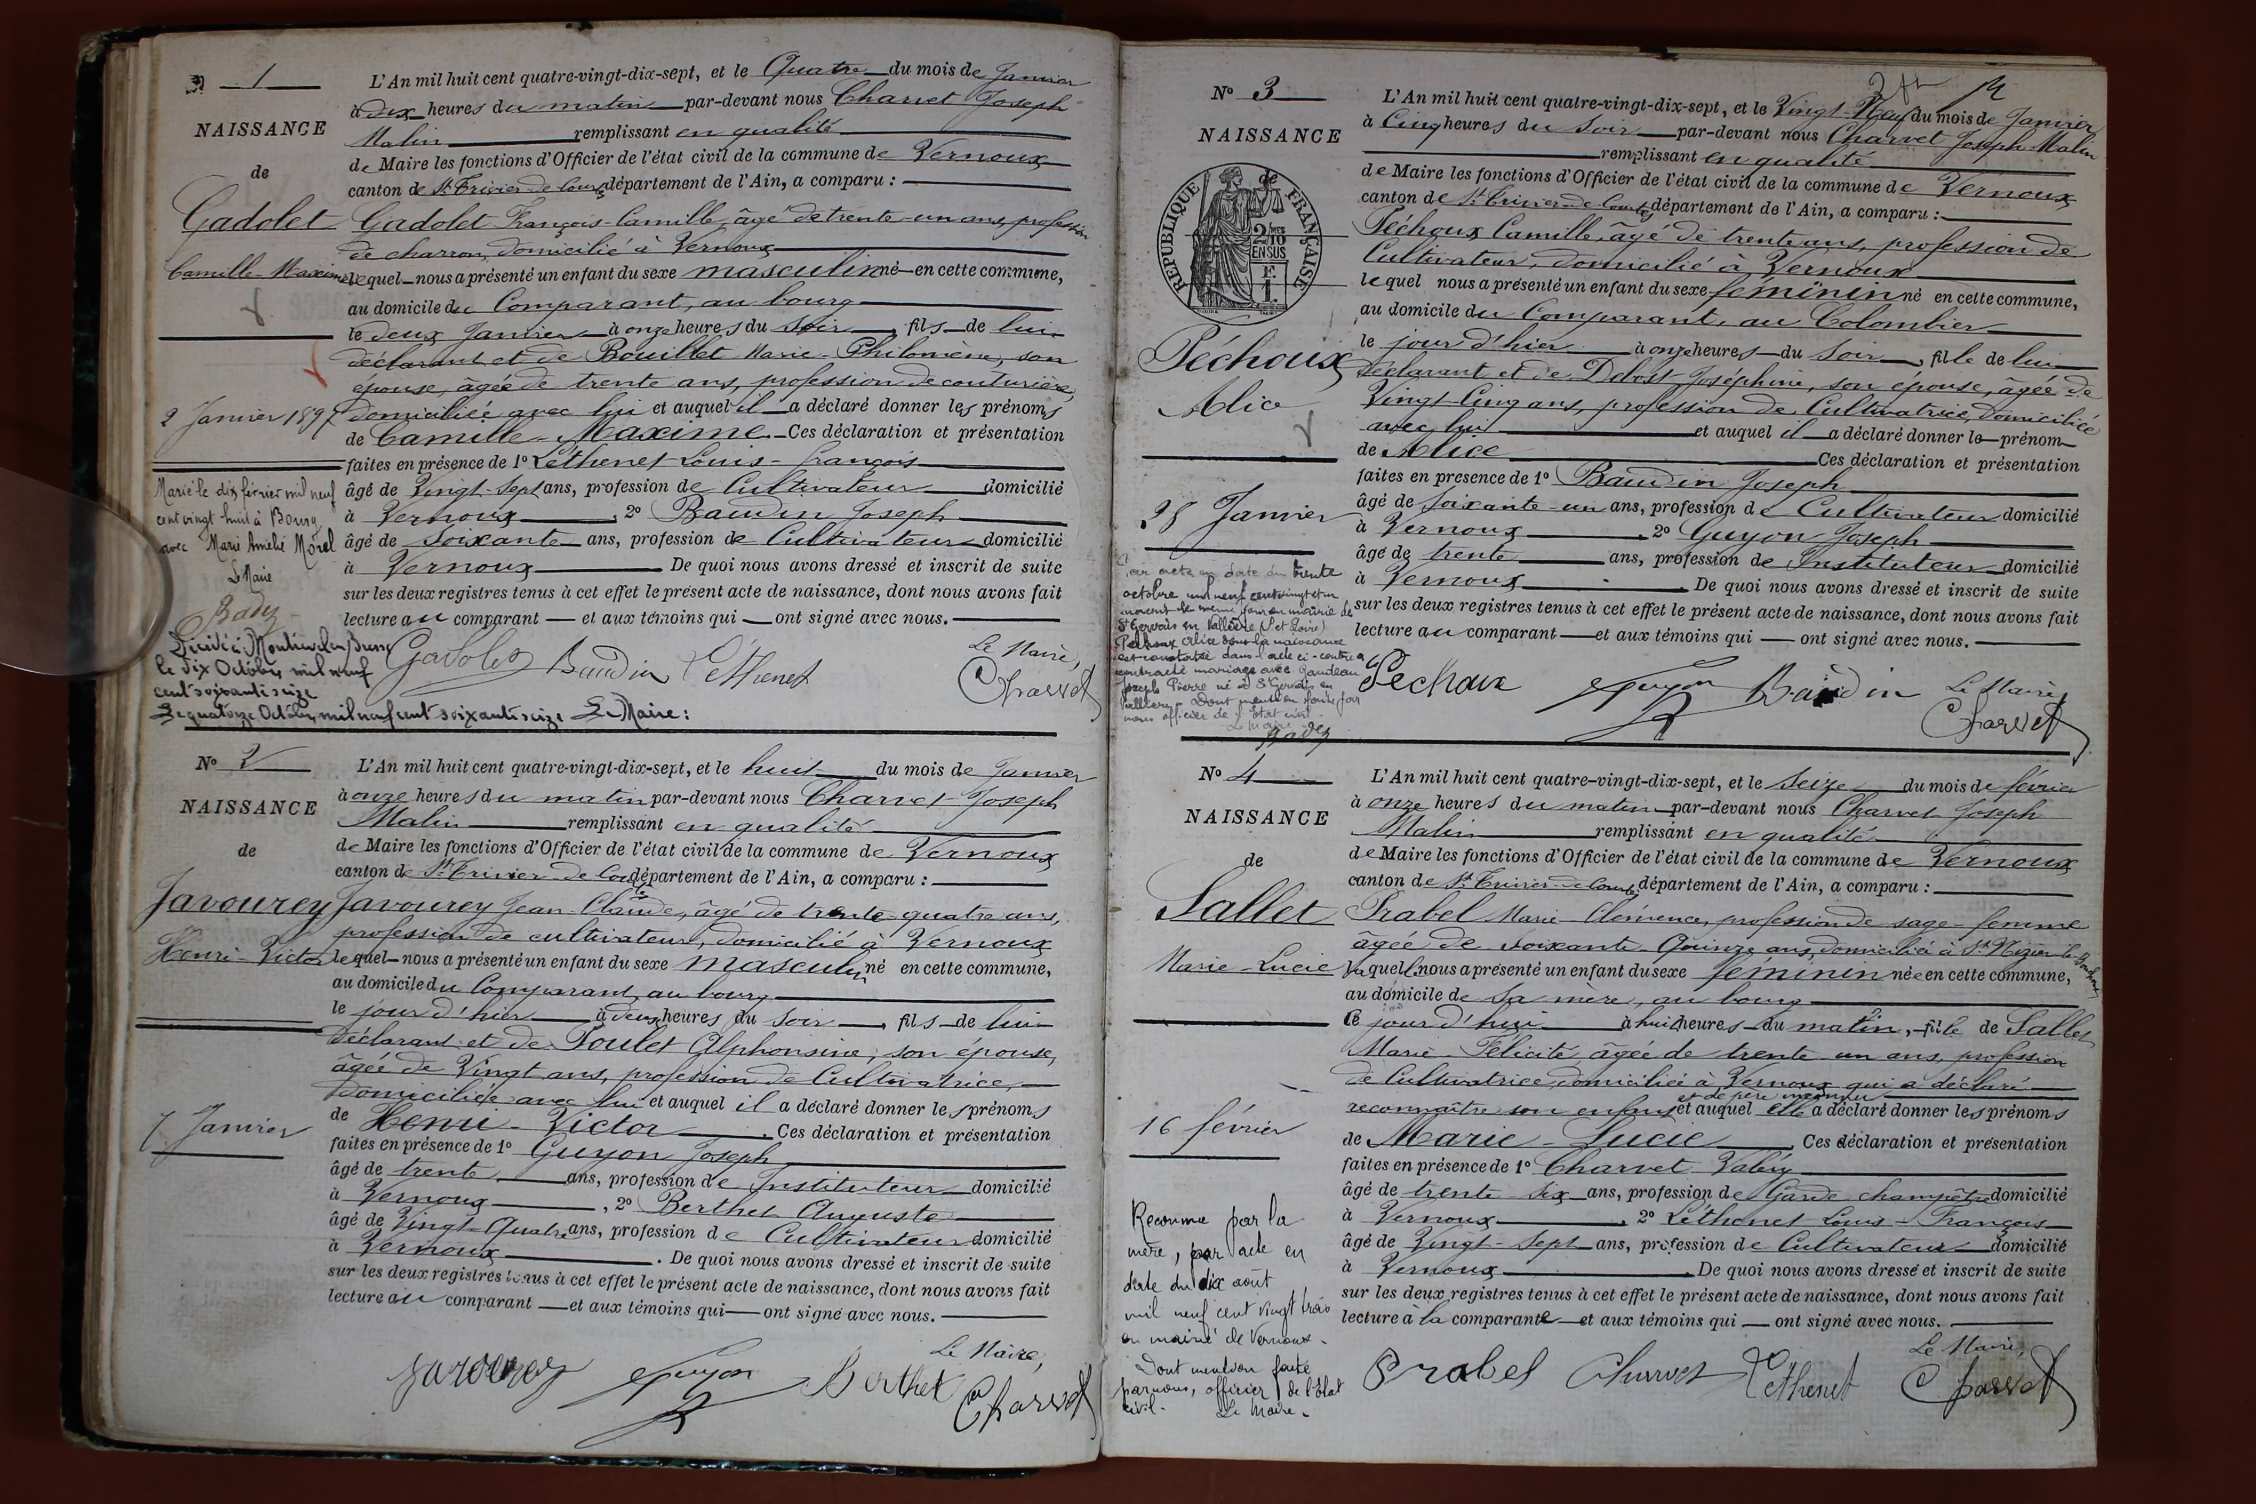 N° 1
NAISSANCE
de
Gadolet
Camille-Maxime
2 Janvier 1897
Marié le dix février mil neuf
cent vingt huit à Bourg
avec Marie Amélie Morel
Le Maire
Décédé à Montrevel en Bresse
le Six Octobre mil neuf
cent soixante seize
Le quatorze Octobre mil neuf cent soixante seize Le Maire :
L'An mil huit cent quatre-vingt-dix-sept, et le Quatre du mois de Janvier
à dix heures du matin par-devant nous Charvet Joseph
Malin remplissant en qualité
de Maire les fonctions d'Officier de l'état civil de la commune de Vernoux
canton de St Trivier de Courtes département de l'Ain, a comparu :
Gadolet François-Camille, âgé de trente-un ans, profession
de charron, domicilié à Vernoux
lequel nous a présenté un enfant du sexe masculin né en cette commune,
au domicile du Comparant, au bourg
le deux Janvier à onze heures du soir, fils de lui
déclarant et de Bouillet Marie-Philomène, son
épouse, âgée de trente ans, profession de couturière,
domiciliée avec lui et auquel il a déclaré donner les prénoms
de Camille-Maxime. Ces déclaration et présentation
faites en présence de 1° Léthenet Louis-François
âgé de Vingt-Sept ans, profession de Cultivateur domicilié
à Vernoux, 2° Baudin Joseph
âgé de Soixante ans, profession de Cultivateur domicilié
à Vernoux De quoi nous avons dressé et inscrit de suite
sur les deux registres tenus à cet effet le présent acte de naissance, dont nous avons fait
lecture au comparant et aux témoins qui ont signé avec nous.
Le Maire,
Gadolet Baudin Léthenet Charvet
N° 2
NAISSANCE
de
Javourey
Henri-Victor
7 Janvier
L'An mil huit cent quatre-vingt-dix-sept, et le huit du mois de Janvier
à onze heures du matin par-devant nous Charvet Joseph
Malin remplissant en qualité
de Maire les fonctions d'Officier de l'état civil de la commune de Vernoux
canton de St Trivier de Courtes département de l'Ain, a comparu :
Javourey Jean-Claude, âgé de trente-quatre ans,
profession de cultivateur, domicilié à Vernoux
lequel nous a présenté un enfant du sexe masculin né en cette commune,
au domicile du Comparant, au bourg
le jour d'hier à deux heures du soir, fils de lui
déclarant et de Poulet Alphonsine, son épouse,
âgée de Vingt ans, profession de Cultivatrice,
domiciliée avec lui et auquel il a déclaré donner les prénoms
de Henri-Victor. Ces déclaration et présentation
faites en présence de 1° Guyon Joseph
âgé de trente ans, profession de Instituteur domicilié
à Vernoux, 2° Berthet Auguste
âgé de Vingt-Quatre ans, profession de Cultivateur domicilié
à Vernoux. De quoi nous avons dressé et inscrit de suite
sur les deux registres tenus à cet effet le présent acte de naissance, dont nous avons fait
lecture au comparant et aux témoins qui ont signé avec nous.
Le Maire,
Javourey Guyon Berthet Charvet
N° 3
NAISSANCE
de
REPUBLIQUE FRANÇAISE
2/10 EN SUS
Péchoux
Alice
28 Janvier
Par acte en date du trente
octobre mil neuf cent vingt et un
St Gervais en Vallière (S et Loire)
Péchoux Alice dont la naissance
est constatée dans l'acte ci-contre a
contracté mariage avec Gaudeau
Joseph Pierre né à St Gervais en
Vallière. Dont mention faite par
nous officier de l'Etat civil.
Le Maire
L'An mil huit cent quatre-vingt-dix-sept, et le Vingt-Neuf du mois de Janvier
à Cinq heures du soir par-devant nous Charvet Joseph-Malin
remplissant en qualité
de Maire les fonctions d'Officier de l'état civil de la commune de Vernoux
canton de St Trivier de Courtes département de l'Ain, a comparu :
Péchoux Camille, âgé de trente ans, profession de
Cultivateur, domicilié à Vernoux
lequel nous a présenté un enfant du sexe féminin né en cette commune,
au domicile du Comparant, au Colombier
le jour d'hier à onze heures du soir, fille de lui
déclarant et de Debost Joséphine, son épouse, âgée de
Vingt-Cinq ans, profession de Cultivatrice, domiciliée
avec lui et auquel il a déclaré donner le prénom
de Alice Ces déclaration et présentation
faites en présence de 1° Baudin Joseph
âgé de soixante-un ans, profession de Cultivateur domicilié
à Vernoux, 2° Guyon Joseph
âgé de trente ans, profession de Instituteur domicilié
à Vernoux. De quoi nous avons dressé et inscrit de suite
sur les deux registres tenus à cet effet le présent acte de naissance, dont nous avons fait
lecture au comparant et aux témoins qui ont signé avec nous.
Péchoux Guyon Baudin Le Maire
Charvet
N° 4
NAISSANCE
de
Sallet
Marie-Lucie
16 février
Reconnue par la
mère, par acte en
date du dix août
mil neuf cent vingt trois
en mairie de Vernoux.
Dont mention faite
par nous, officier de l'Etat
civil. Le Maire.
L'An mil huit cent quatre-vingt-dix-sept, et le Seize du mois de février
à onze heures du matin par-devant nous Charvet Joseph
Malin remplissant en qualité
de Maire les fonctions d'Officier de l'état civil de la commune de Vernoux
canton de St Trivier de Courtes département de l'Ain, a comparu :
Prabel Marie-Clémence, profession de sage-femme
âgée de soixante-Quinze ans, domiciliée à St Nizier-le-Bouchoux
laquelle nous a présenté un enfant du sexe féminin née en cette commune,
au domicile de sa mère, au bourg
le jour d'hui à huit heures du matin, fille de Sallet
Marie-Félicité, âgée de trente-un ans, profession
de Cultivatrice, domiciliée à Vernoux qui a déclaré
et de père inconnu
reconnaître son enfant et auquel elle a déclaré donner les prénoms
de Marie-Lucie Ces déclaration et présentation
faites en présence de 1° Charvet Valéry
âgé de trente-six ans, profession de Garde champêtre domicilié
à Vernoux, 2° Léthenet Louis-François
âgé de Vingt-Sept ans, profession de Cultivateur domicilié
à Vernoux. De quoi nous avons dressé et inscrit de suite
sur les deux registres tenus à cet effet le présent acte de naissance, dont nous avons fait
lecture à la comparante et aux témoins qui ont signé avec nous.
Le Maire,
Prabel Charvet Léthenet Charvet